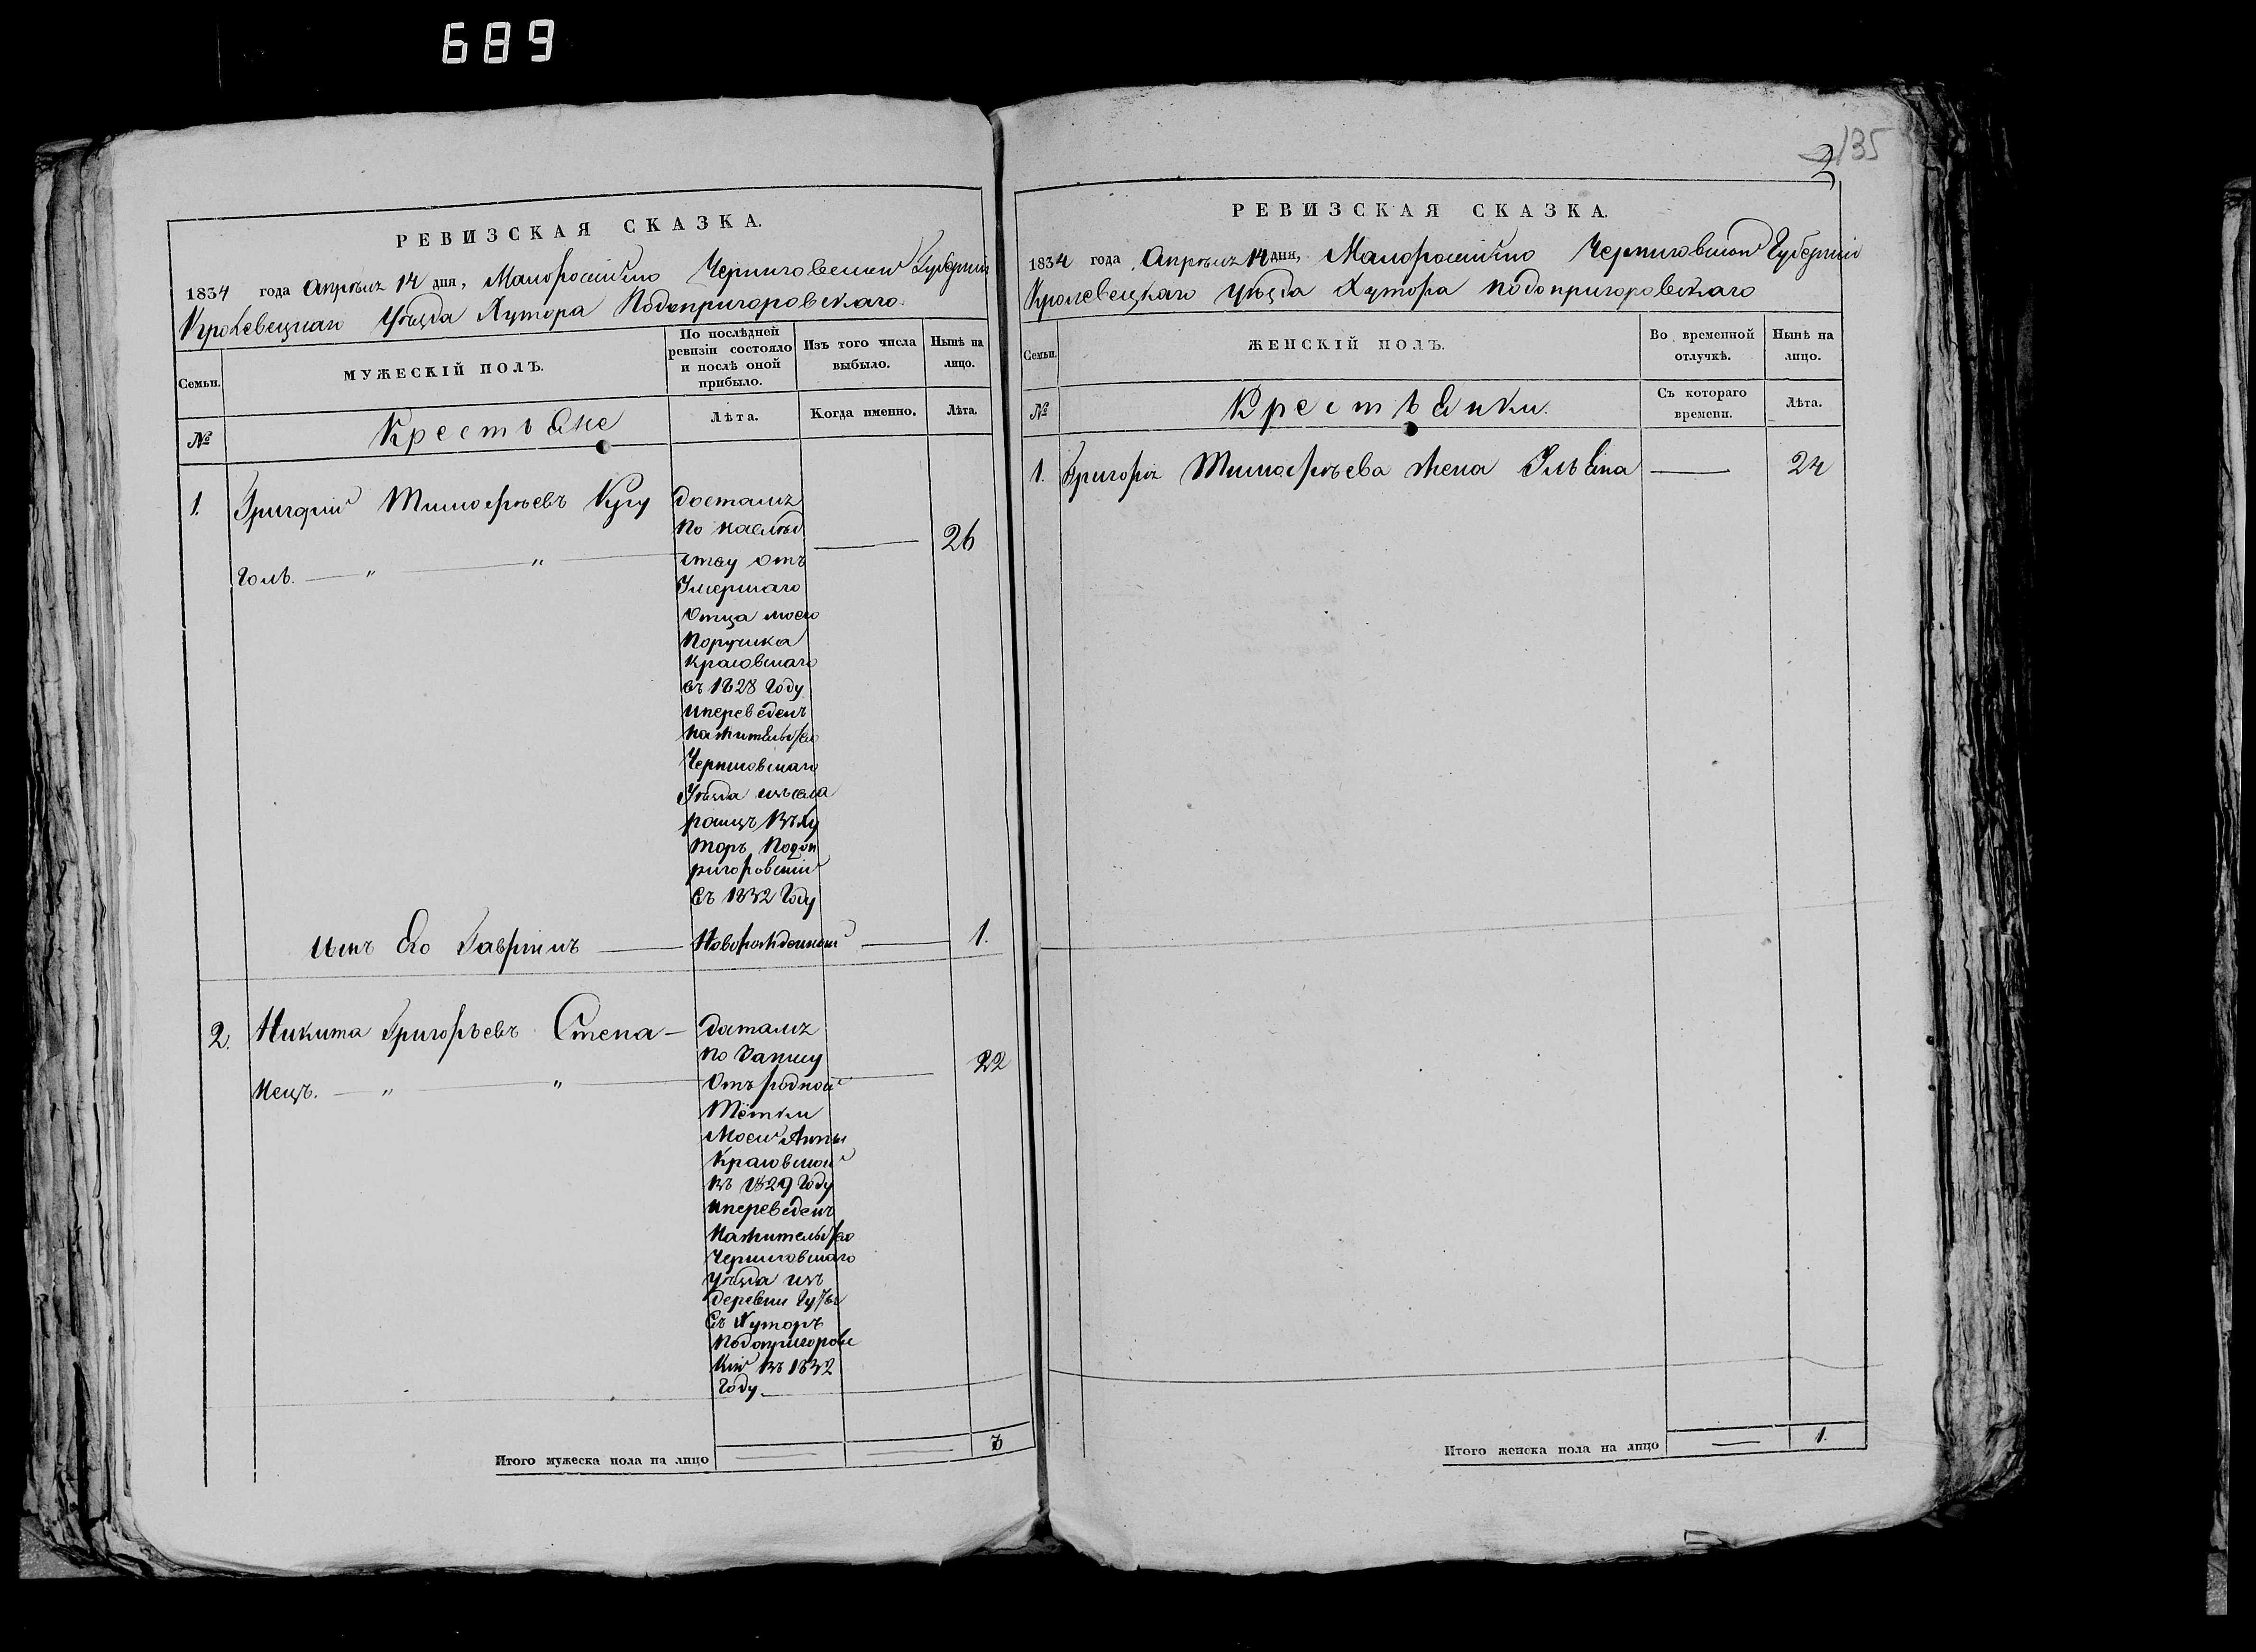 689
135
2
РЕВИЗСКАЯ СКАЗКА.
1834 года Апрѣля 14 дня, Малоросійско Черниговской Губерніи
Кролевецкаго Уѣзда Хутора Подопригоровскаго.
Семьи.
МУЖЕСКІЙ ПОЛЪ.
По послѣдней
ревизіи состояло
и послѣ оной
прибыло.
Изъ того числа
выбыло.
Нынѣ на
лицо.
№
Крестьяне
Лѣта.
Когда именно.
Лѣта.
1. Григорій Тимофѣевъ Кргу
голь. — „ — „ —
досталя
по наслѣд
ству отъ
Умершаго
Отца моего
Порутчика
въ 1828 Году
и переведенъ
на жительство
Черниговскаго
Уѣзда изъ села
въ Ху
торъ Подоп
ригоровскій
въ 1832 Году
— 26
сынъ Его Гавріилъ — Новорожденный — 1.
2. Никита Григорьевъ Степа-
нецъ. — „ — „ —
досталя
по
отъ родной
Тётки
Моей Анны
въ 1829 Году
и переведенъ
на жительство
Черниговскаго
Уѣзда изъ
деревни
въ Хуторъ
Подопригоровс
кій въ 1832
Году
— 22
Итого мужеска пола на лицо — — 3
РЕВИЗСКАЯ СКАЗКА.
1834 года Апрѣля 14 дня, Малоросійско Черниговской Губерніи
Кролевецкаго Уѣзда Хутора Подопригоровскаго
Семьи.
ЖЕНСКІЙ ПОЛЪ.
Во временной
отлучкѣ.
Нынѣ на
лицо.
№
Крестьянки.
Съ котораго
времени.
Лѣта.
1. Григорія Тимофѣева жена Ульяна — 24
Итого женска пола на лицо — 1.